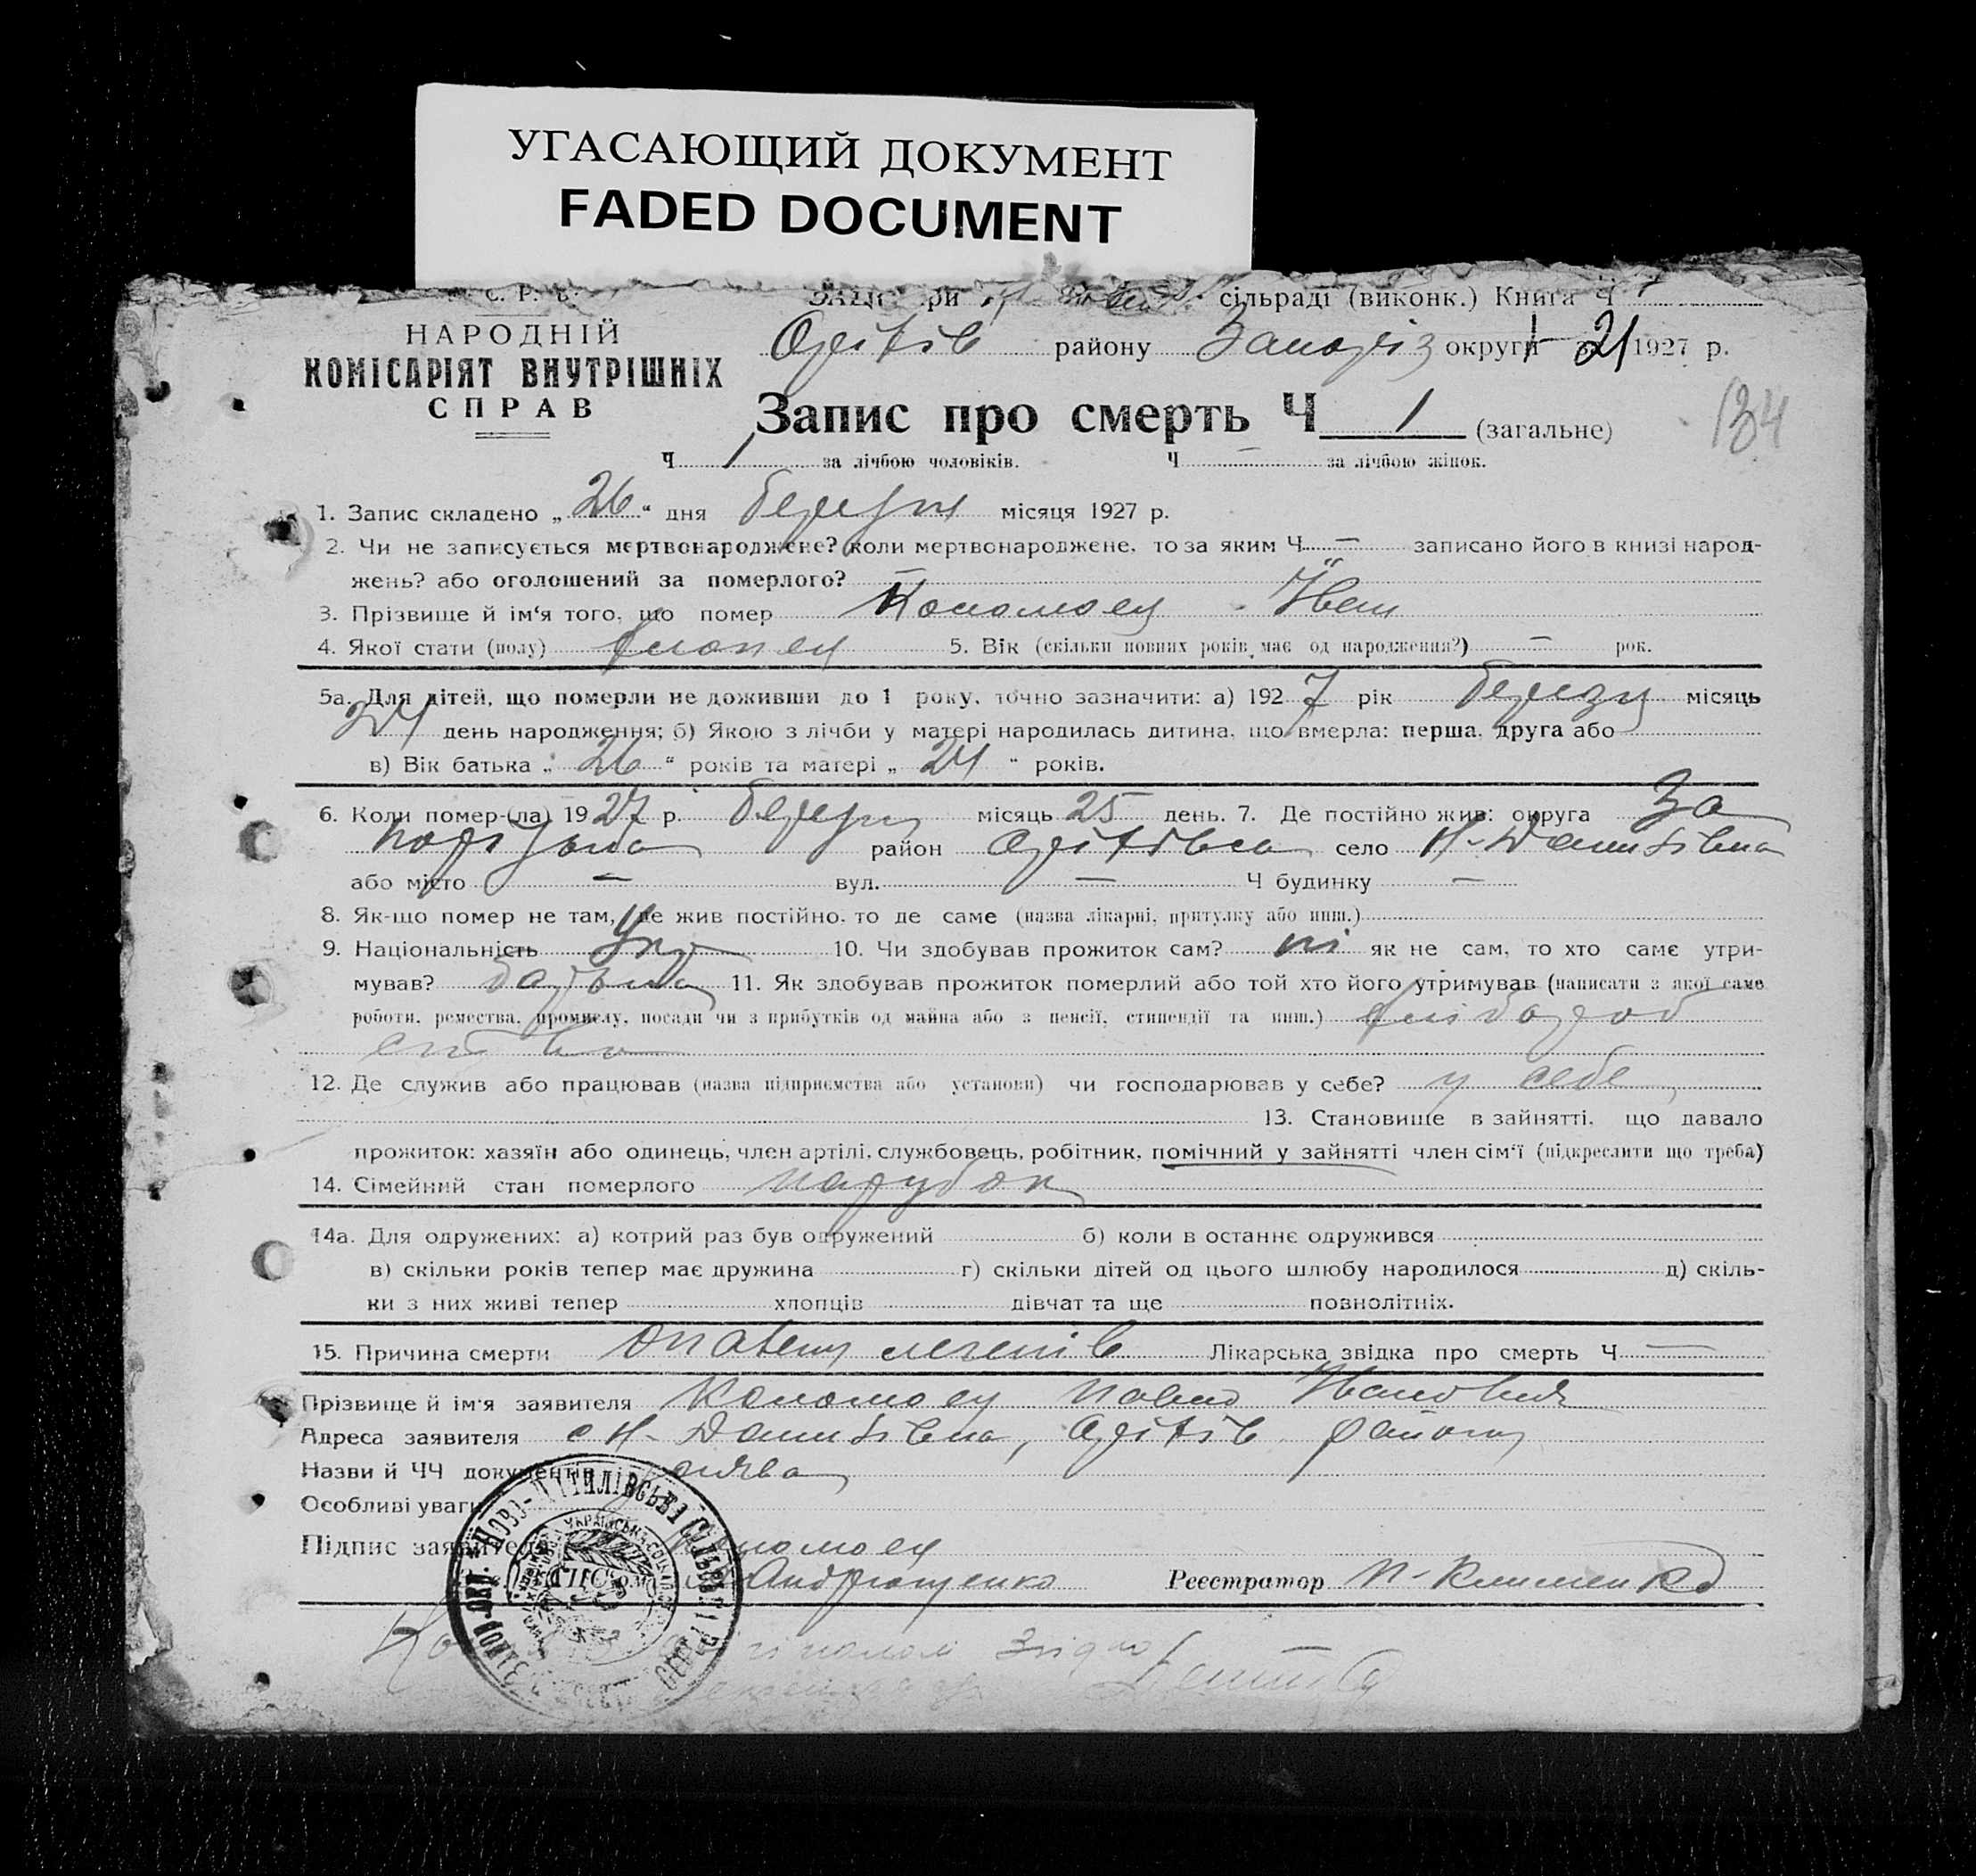 УГАСАЮЩИЙ ДОКУМЕНТ
FADED DOCUMENT
С. Р. Р.
при сільраді (виконк.) Книга Ч
НАРОДНІЙ
КОМІСАРІЯТ ВНУТРІШНІХ
СПРАВ
району округи 1927 р.
Запис про смерть Ч 1 (загальне)
134
Ч 1 за лічбою чоловіків. Ч — за лічбою жінок.
1. Запис складено „ 26 “ дня березня місяця 1927 р.
2. Чи не записується мертвонароджене? коли мертвонароджене, то за яким Ч — записано його в книзі народ-
жень? або оголошений за померлого? —
3. Прізвище й ім‘я того, що помер Коломоец Іван
4. Якої стати (полу) хлопец 5. Вік (скільки повних років має од народження?) — рок.
5а. Для дітей, що померли не доживши до 1 року, точно зазначити: а) 1927 рік березня місяць
24 день народження; б) Якою з лічби у матері народилась дитина, що вмерла: перша, друга або
в) Вік батька „ 26 “ років та матері „ 24 “ років.
6. Коли помер-(ла) 1927 р. березня місяць 25 день. 7. Де постійно жив: округа За
поріжька район село
або місто — вул. — Ч будинку —
8. Як-що помер не там, де жив постійно, то де саме (назва лікарні, притулку або инш.)
9. Національність Укр 10. Чи здобував прожиток сам? ні як не сам, то хто саме утри-
мував? батько 11. Як здобував прожиток померлий або той хто його утримував (написати з якої саме
роботи, ремества, промислу, посади чи з прибутків од майна або з пенсії, стипендії та инш.) хлібороб
ство
12. Де служив або працював (назва підприємства або установи) чи господарював у себе? у себе
13. Становище в зайнятті, що давало
прожиток: хазяїн або одинець, член артілі, службовець, робітник, помічний у зайнятті член сім‘ї (підкреслити що треба)
14. Сімейний стан померлого парубок
14а. Для одружених: а) котрий раз був одружений б) коли в останнє одружився
в) скільки років тепер має дружина г) скільки дітей од цього шлюбу народилося д) скіль-
ки з них живі тепер хлопців дівчат та ще повнолітніх.
15. Причина смерти легенів Лікарська звідка про смерть Ч —
Прізвище й ім‘я заявителя Коломоец Павло Іванович
Адреса заявителя району
Назви й ЧЧ документів заява
Особливі уваги
Підпис заявителя Коломоец
Андрющенко Реєстратор П. Клименко